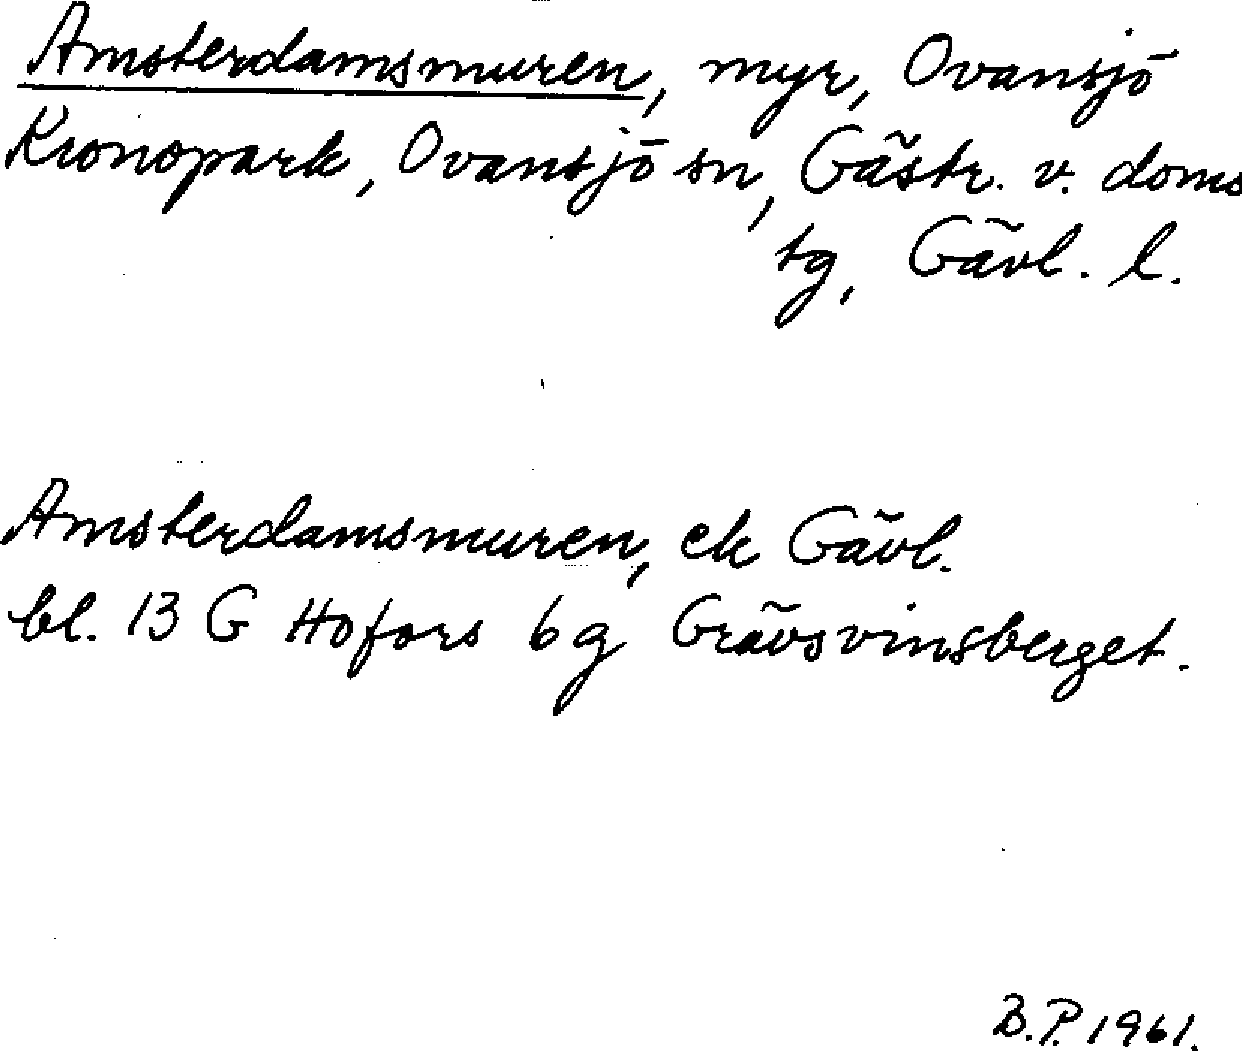 Amsterdamsmuren, myr, Ovansjö
Kronopark, Ovansjö sn, Gästr. v. doms
tg, Gävl. l.
Amsterdamsmuren, ek Gävl.
bl. 13 G Hofors 6 g Grävsvinsberget.
B.P. 1961.